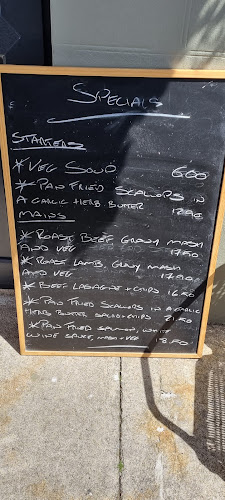 SPECIALS
STARTERS
* VEG SOUP 6.00
* PAN FRIED SCALLOPS IN
A GARLIC HERB BUTTER
MAINS
* ROAST BEEF GRAVY MASH
AND VEG 17.50
* ROAST LAMB, GRAVY MASH
AND VEG
* BEEF LASAGNE + CHIPS 16.50
* PAN FRIED SCALLOPS IN A GARLIC
HERB BUTTER SALAD + CHIPS 21.50
* PAN FRIED SALMON, WHITE
WINE SAUCE, MASH + VEG 18.50